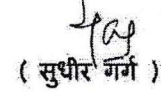 ( सुधीर गर्ग )